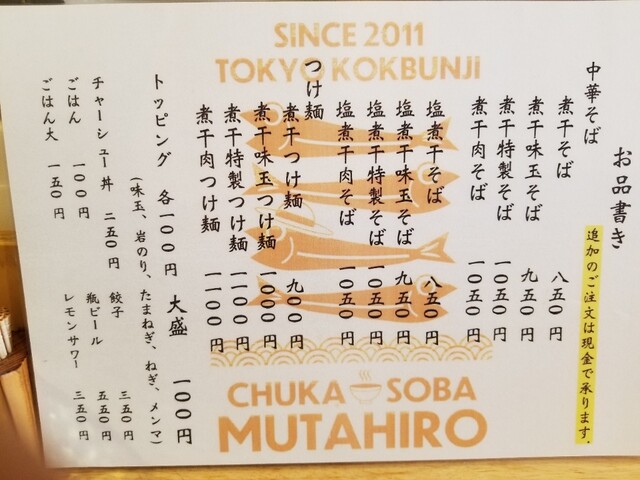 SINCE 2011
TOKYO KOKBUNJI
お品書き
追加のご注文は現金で承ります。
中華そば
煮干そば 八五〇円
煮干味玉そば 九五〇円
煮干特製そば 一〇五〇円
煮干肉そば 一〇五〇円
塩煮干そば 八五〇円
塩煮干味玉そば 九五〇円
塩煮干特製そば 一〇五〇円
塩煮干肉そば 一〇五〇円
つけ麺
煮干つけ麺 九〇〇円
煮干味玉つけ麺 一〇〇〇円
煮干特製つけ麺 一一〇〇円
煮干肉つけ麺 一一〇〇円
トッピング 各一〇〇円 大盛 一〇〇円
(味玉、岩のり、たまねぎ、ねぎ、メンマ)
チャーシュー丼 二五〇円
ごはん 一〇〇円
ごはん大 一五〇円
餃子 三五〇円
瓶ビール 五五〇円
レモンサワー 三五〇円
CHUKA SOBA
MUTAHIRO